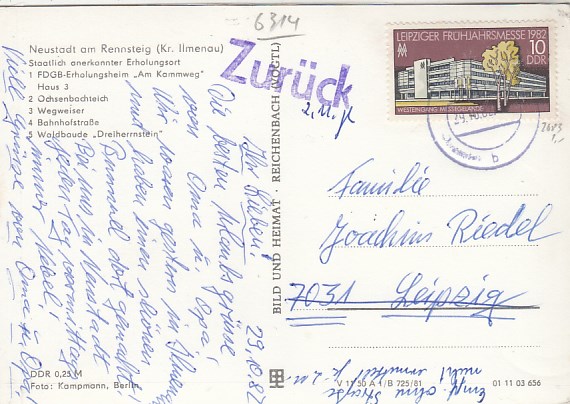 6314
Neustadt am Rennsteig (Kr. Ilmenau)
Staatlich anerkannter Erholungsort
1 FDGB-Erholungsheim „Am Kammweg"
Haus 3
2 Ochsenbachteich
3 Wegweiser
4 Bahnhofstraße
5 Waldbaude „Dreiherrnstein"
Zurück
LEIPZIGER FRÜHJAHRSMESSE 1982
10
DDR
WESTEINGANG MESSEGELÄNDE
b
29.10.82
Ihr Lieben!
Die besten Urlaubsgrüsse
von Oma u. Opa!
Wir waren gestern in Ilmenau
und haben einen schönen
Bummel dort gemacht.
Bei uns in Neustadt
jeden Tag vormittags
immer Nebel!
Viele Grüsse von Oma u. Opa!
BILD UND HEIMAT · REICHENBACH (VOGTL)
Familie
Joachim Riedel
7031 Leipzig
Empf. ohne Straße
nicht ermittelt
DDR 0,25 M
Foto: Kampmann, Berlin
V 11 50 A 1/B 725/81
01 11 03 656